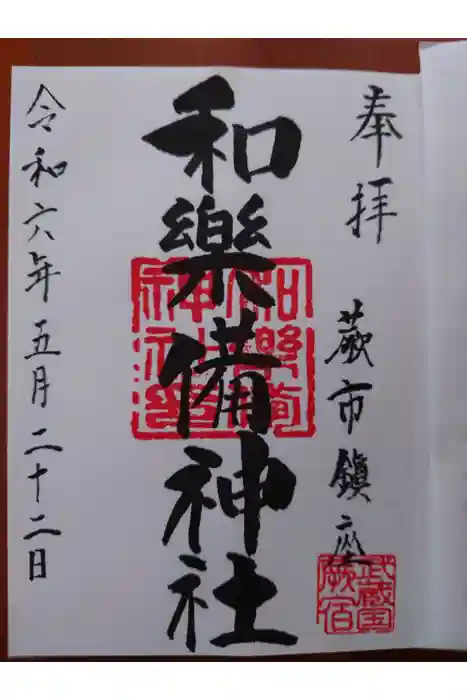 奉拝
蕨市鎮座
武蔵国
蕨宿
和樂備神社
和樂備
神社印
令和六年五月二十二日